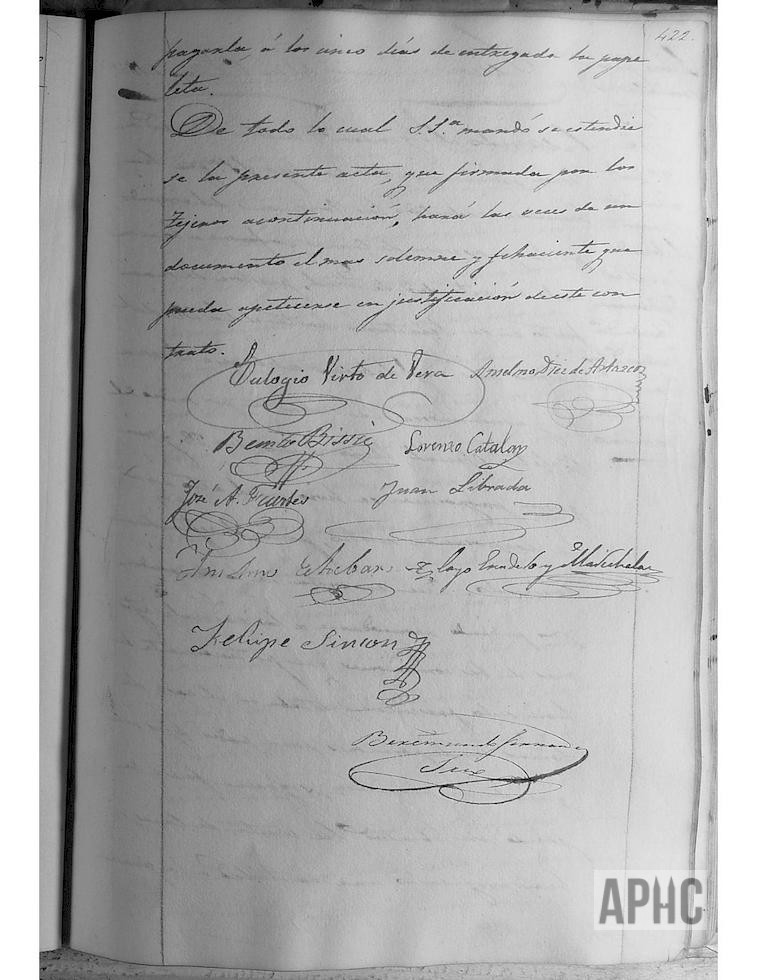 422.
pagarla, á los cinco días de entregada la pape
leta.
De todo lo cual S.S.ª mandó se estendie
se la presente acta, que firmada por los
acontinuación, hará las veces de un
documento el mas solemne y fehaciente que
pueda apetecerse en justificación de este con
trato.
Eulogio Virto de Vera Anselmo Diez de
Benito Lorenzo Catalan
José A. Fuertes Juan Librada
Anselmo Esteban y
Felipe Simon
Beremundo
APHC